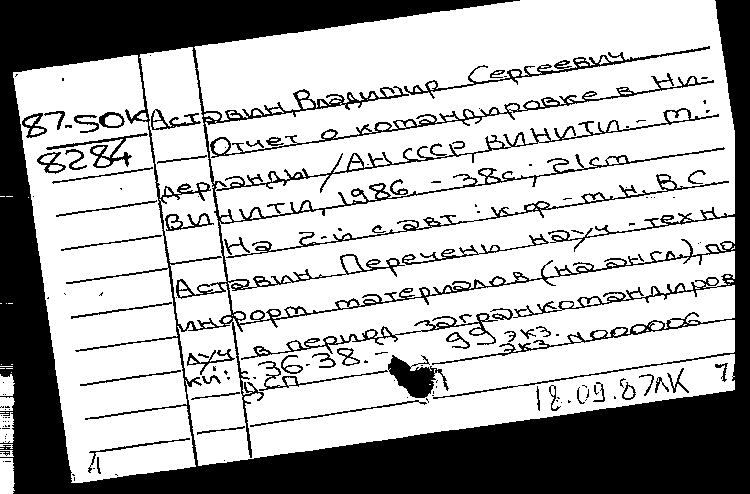 87-5ОК Аставин, Владимир Сергеевич.
8284 Отчет о командировке в Ни-
дерланды / АН СССР, ВИНИТИ. - М.:
ВИНИТИ, 1986. - 38с.; 21см
На 2-й с. авт.: к.ф.-м.н. В.С.
Аставин. Перечень науч-техн.
информ. материалов (на англ.), по
луч в период загранкомандиров
ки: с. 36-38. - 99 экз.
ДСП экз. N000006
18.09.87ЛК